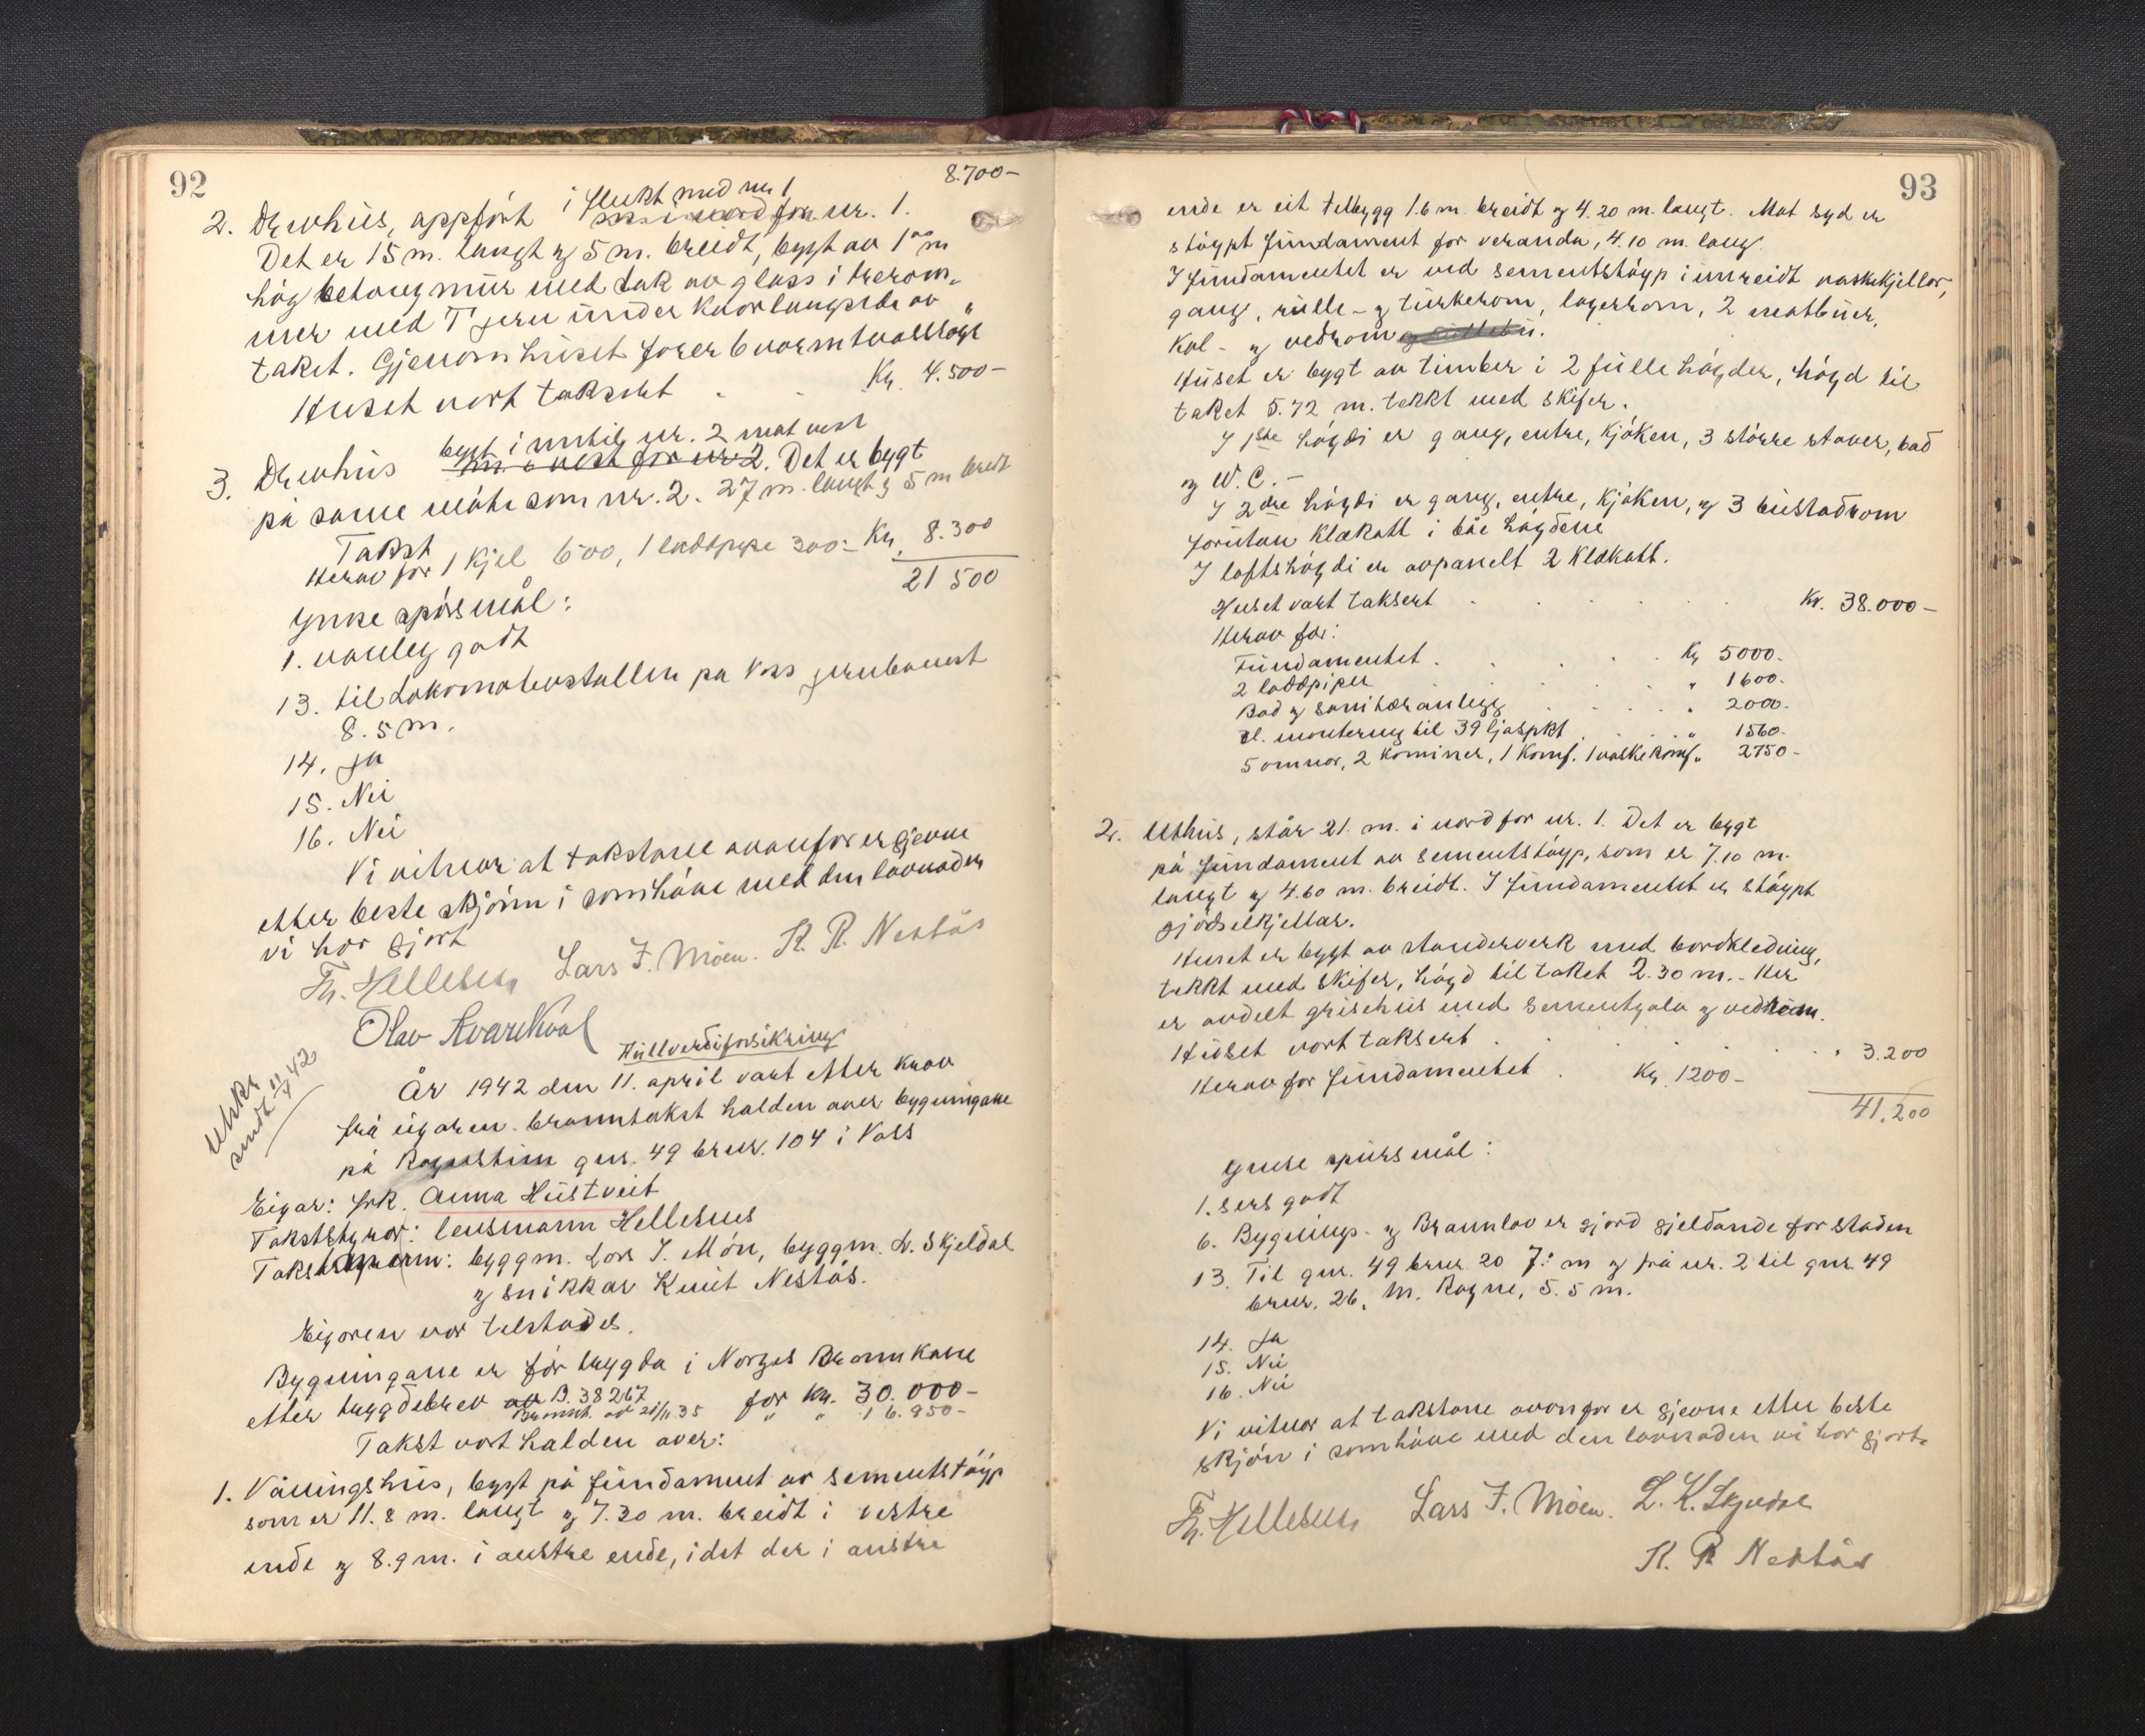 92
8.700-
i flukt med nr 1
2. Drivhus, oppført for nr. 1.
Det er 15 m. langt og 5 m. breidt, bygt av 1 m
høg betongmur med tak av glass i trerom-
mer med T jern under kvar langside av
taket. Gjenom huset fører 6 varmtvasslöyp
Huset vart taksert . . Kr. 4.500-
bygt i mot nr. 2 mot vest
3. Drivhus m. i vest for nr 2. Det er bygt
på same måte som nr. 2. 27 m. langt og 5 m breidt
Takst Kr. 8.300
Herav for 1 kjel 600, 1 loddpipe 300.-
21 500
Ymse spörsmål:
1. vanleg godt
13. til Lokomotivstallen på Voss jernbanest
8.5 m.
14. Ja
15. Nei
16. Nei
Vi vitnar at takstane ovanfor er gjevne
etter beste skjönn i samhöve med den lovnaden
vi har gjort
Th. Hellesnes Lars J. Möen. K. R. Nestås
Olav Kvarekval
Utskr.
sendt 11/4 42
Fullverdiforsikring
År 1942 den 11. april vart etter krav
frå eigaren branntakst halden over bygningane
på Rognstein gnr. 49 brnr. 104 i Voss
Eigar: frk. Anna Hustveit
Takststyrar: lensmann Hellesnes
Takstmenn: byggm. Lars J. Mön, byggm. L. Skjeldal
og snikkar Knut Nestås.
Eigaren var tilstades.
Bygningane er för trygda i Norges Brannkasse
etter trygdebrev av B. 38267 for kr. 30.000-
Brannt. av 21/11.35 " " 16.950-
Takst vart halden over:
1. Våningshus, bygt på fundament av sementstöyp
som er 11.8 m. langt og 7.30 m. breidt i vestre
ende og 8.9 m. i austre ende, idet der i austre
93
ende er eit tilbygg 1.6 m. breidt og 4.20 m. langt. Mot syd er
stöypt fundament for veranda, 4.10 m. lang.
I fundamentet er ved sementstöyp innreidt vaskekjellar,
gang, rulle- og turkerom, lagerrom, 2 matbuer,
kol- og vedrom.
Huset er bygt av timber i 2 fulle högder, högd til
taket 5.72 m. tekkt med skifer.
I 1ste högdi er gang, entre, kjöken, 3 större stover, bad
og W.C.-
I 2dre högdi er gang, entre, kjöken, og 3 bustadrom
forutan klækott i båe högdene
I loftshögdi er avpanelt 2 klækott.
Huset vart taksert . . . . Kr. 38.000-
Herav for:
Fundamentet . . . . Kr 5000.-
2 loddpiper . . . . " 1600.-
Bad og sanitæranlegg . . . . " 2000.-
El. montering til 39 ljospkt . . . " 1560.-
5 omnar, 2 kominer, 1 komf. 1 vaskekomf. " 2750-
2. Uthus, står 21. m. i nord for nr. 1. Det er bygt
på fundament av sementstöyp, som er 7.10 m.
langt og 4.60 m. breidt. I fundamentet er stöypt
gjödselkjellar.
Huset er bygt av standerverk med bordkledning,
tekkt med skifer, högd til taket 2.30 m.- Her
er avdelt grisehus med sementgolv og vedrom.
Huset vart taksert . . . . " 3.200
Herav for fundamentet . Kr. 1200-
41.200
Ymse spursmål:
1. sers godt
6. Bygnings- og Brannlov er gjord gjeldande for staden
13. Til gnr. 49 brnr. 20 7.- m og frå nr. 2 til gnr. 49
brnr. 26, M. Rogne, 5.5 m.
14. Ja
15. Nei
16. Nei
Vi vitnar at takstane ovanfor er gjevne etter beste
skjön i samhöve med den lovnaden vi har gjort.
Th. Hellesnes Lars J. Möen. L. K. Skjeldal
K. R Nestås